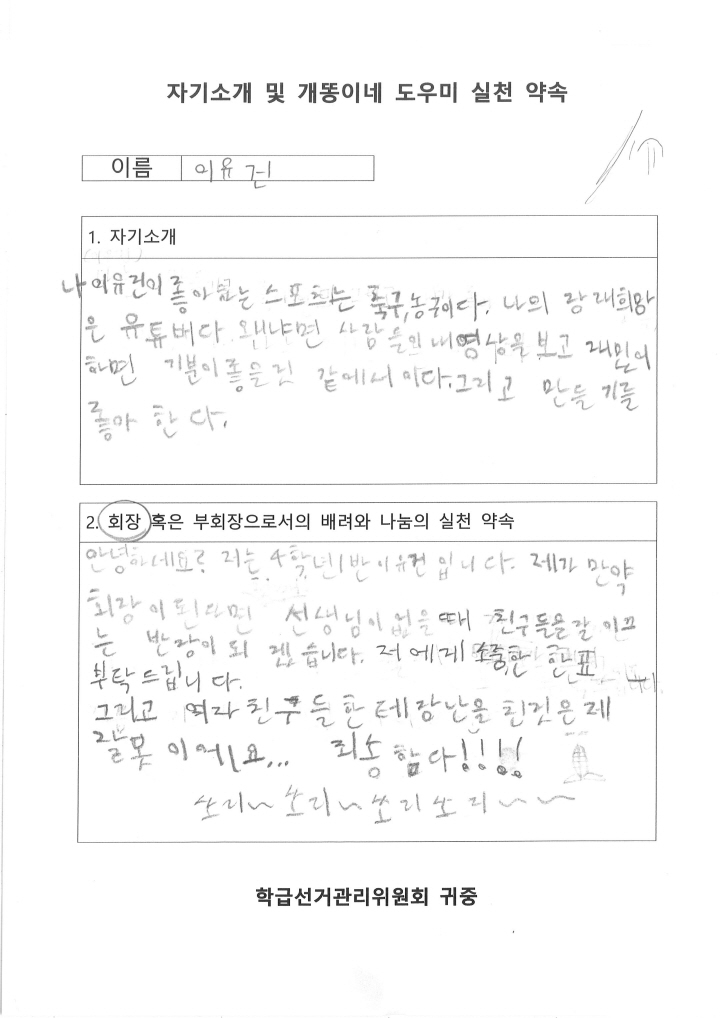 자기소개 및 개똥이네 도우미 실천 약속
이름 이유건
1. 자기소개
나 이유건이 좋아하는 스포츠는 축구,농구이다. 나의 장래희망
은 유튜버다. 왜냐면 사람들이 내영상을 보고 재밌어
하면 기분이좋을건 같에서 이다.그리고 만들기를
좋아 한다.
2. 회장 혹은 부회장으로서의 배려와 나눔의 실천 약속
안녕하세요? 저는 4학년1반 이유건 입니다. 제가 만약
회장이된다면 선생님이없을때 친구들을잘 이끄
는 반장이 되 겠습니다. 저에게 소중한 한표
부탁드립니다.
그리고 여라친구들한테장난을 친것은제
잘못이에요... 죄송합다!!!!
쏘리~ 쏘리~쏘리쏘리~~
학급선거관리위원회 귀중